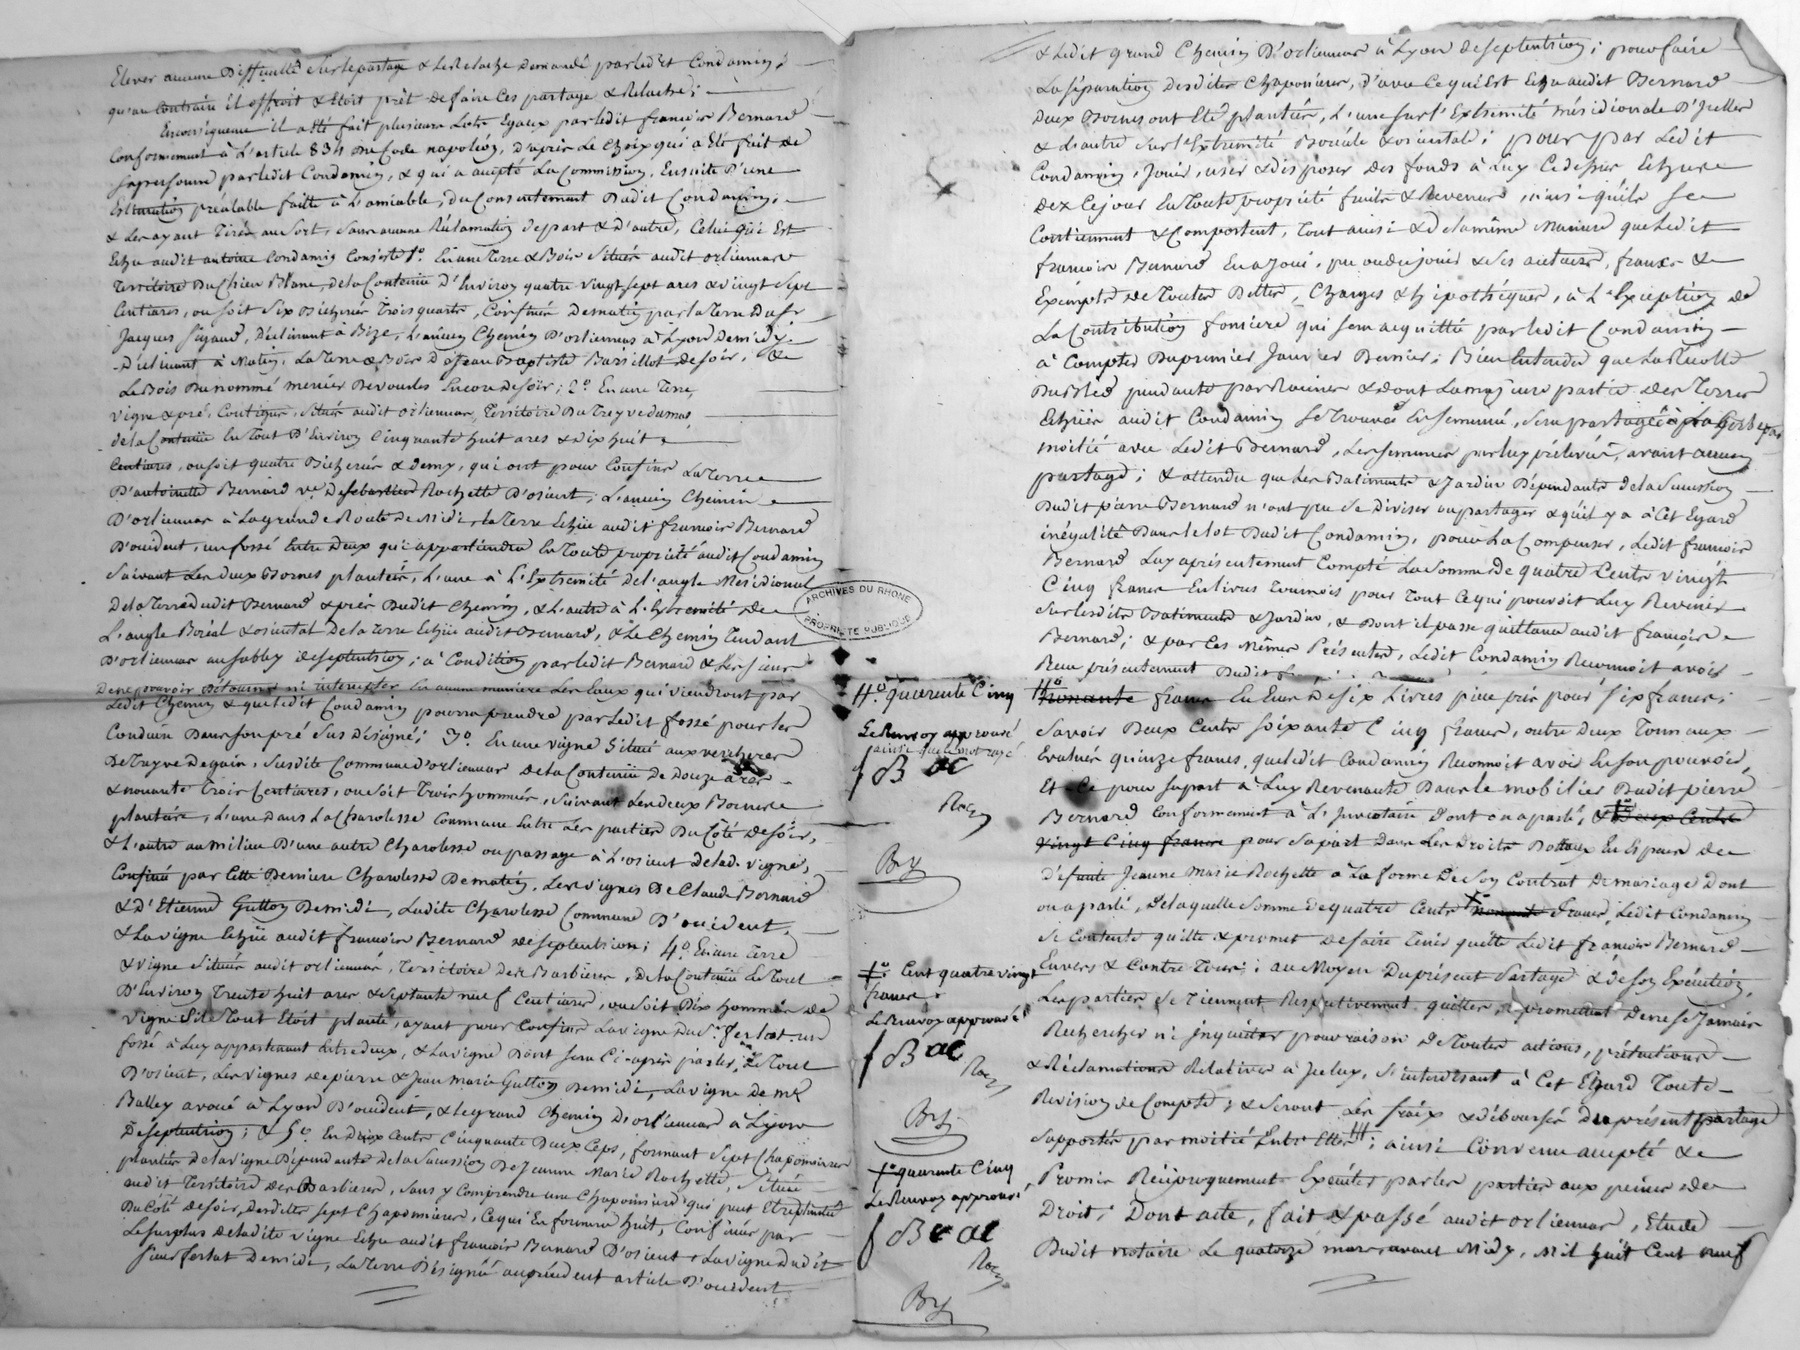 Elever aucune Difficulté sur le partage & le Relache demandé par ledit Condamin,
qu'au contraire il offroit & etoit prêt de faire les partage & Relache;
En conséquence il a été fait plusieurs Lots Egaux par ledit françois Bernard
conformement à L'article 834 du Code napoléon, d'après le choix qui a été fait de
sa personne par ledit Condamin, & qui a accepté La Commission. Ensuite d'une
Estimation préalable faitte à L'amiable, du Consentement Dudit Condamin,
& Les ayant Tirés au Sort, sans aucune Réclamation de part & d'autre, Celui qui Est
Echu audit antoine Condamin Consiste 1°. En une Terre & Bois Situés audit orliennas
Territoire du Chien Blanc, de la Contenüe d'Environ quatre vingt sept ares & vingt Sept
Centiares, ou soit Six Bicherées Trois quarts, Confinés de matin par la Terre du Sr
Jacques Déclinant à Bize, L'ancien Chemin D'orliennas à Lyon De midy
Déclinant à Matin, La Terre & Bois De Jean Baptiste Bassillot de soir, &
Le Bois Du nommé mercier De vourles Encore de soir; 2°. En une Terre,
vigne & pré, Contigus, Situés audit orliennas, Territoire Du Treyve dumas,
de la Contenüe En Tout D'Environ Cinquante huit ares & dix huit
Centiares, ou soit quatre Bicherées & demy, qui ont pour Confins La Terre
D'antoinette Bernard ve De sebastien Rochette D'orient, L'ancien Chemin
D'orliennas à La grande Route De Midi, la Terre Echüe audit françois Bernard
D'occident, un fossé Entre Deux qui appartiendra En Toute propriété audit Condamin
Suivant Les deux Bornes plantées, L'une à L'Extremité de L'angle Meridional
De la Terre dudit Bernard & près Dudit Chemin, & L'autre à L'Extremité de
L'angle Boréal & oriental De la Terre Echüe audit Bernard, & Le Chemin Tendant
D'orliennas au sabley de septentrion; à Condition par ledit Bernard & Les siens
De ne pouvoir détourner ni intercepter En aucune maniere Les Eaux qui viendront par
Ledit Chemin & que ledit Condamin pourra prendre par Ledit fossé pour les
Conduire Dans son pré Sus Désigné; 3°. En une vigne Située aux vercheres
De Treyve Degain, Susdite Commune d'orliennas De la Contenüe De Douze ares
& nonante Trois Centiares, ou soit Trois hommées, Suivant Les deux Bornes
plantées, L'une dans La Charolesse Commune Entre Les parties Du Côté de soir,
& L'autre au milieu D'une autre Charolesse ou passage à L'orient de lad. vigne,
Confiné par Cette Derniere Charolesse De matin, Les vignes De Claude Bernard
& D'Etienne Gutton De midi, Ladite Charolesse Commune D'occident,
& La vigne Echüe audit françois Bernard de septentrion; 4°. En une Terre
& vigne Situées audit orliennas, Territoire des Barbieres, De la Contenüe En Tout
D'Environ Trente huit ares & Septante neuf Centiares, ou soit Dix hommées de
vigne Si le Tout Etoit planté, ayant pour Confins La vigne Du Sr. ferlat un
fossé à Luy appartenant Entre deux, & La vigne Dont sera Ci-après parlé, Le Tout
D'orient, Les vignes de pierre & Jean Marie Gutton De midi, La vigne de Mr
Balley avoué à Lyon D'occident, & le grand Chemin D'orliennas à Lyon
De septentrion; & 5°. En Deux Cents Cinquante Deux Ceps, formant Sept Chaponnieres
plantées De la vigne Dépendante de la Succession De Jeanne Marie Rochette, Située
audit Territoire des Barbieres, Sans y Comprendre une Chaponniere qui peut Etre plantée
Du Côté de soir, Desdittes sept Chaponnieres, Ce qui En formera huit, Confinées par
Le surplus de ladite vigne Echu audit françois Bernard D'orient, La vigne Dudit
Sieur ferlat De midi, La Terre Désignée au précédent article D'occident
ARCHIVES DU RHONE
PROPRIÉTÉ PUBLIQUE
quarante Cinq
Le Renvoy approuvé
ainsi que le mot rayé
f B ac
Roz
By
Cent quatre vingt
francs
Le Renvoy approuvé
f B ac
Roz
By
quarante Cinq
Le Renvoy approuvé
f B ac
Roz
By
& Ledit grand Chemin D'orliennas à Lyon de septentrion; pour faire
La séparation Desdites Chaponnieres, d'avec Ce qui Est Echu audit Bernard
Deux Bornes ont Eté plantées, L'une sur L'Extremité méridionale D'Icelles
& L'autre Sur l'Extremité Boréale & orientale; pour par Ledit
Condamin, Jouir, user & disposer Des fonds à Luy Cedessus Echus
Dez Ce jour En Toute propriété fruits & Revenus, ainsi qu'ils se
Contiennent & Comportent, Tout ainsi & De la même Maniere que Ledit
françois Bernard En a Joui, pu ou du jouir & Ses auteurs, francs &
Exempts de Toutes Dettes, Charges & hipothéques, à L'Exception de
La Contribution fonciere qui sera acquittée par ledit Condamin
à Compter Du premier Janvier Dernier; Bien Entendu que La Recolte
Des Bleds pendants par Racines & dont La majeure partie Des Terres
Echües audit Condamin Se trouvés Ensemencé, sera partagée par
moitié avec Ledit Bernard, Les semences par luy prelevées, avant aucun
partage; & attendu que Les Batiments & Jardin Dépendants de la Succession
Dudit pierre Bernard n'ont pu Se Diviser ou partager & qu'il y a à Cet Egard
inégalité Dans le lot Dudit Condamin, pour La Compenser, Ledit françois
Bernard Luy a présentement Compté La Somme De quatre Cents vingt
Cinq francs En livres Tournois pour Tout Ce qui pouvoit Luy Revenir
Sur Lesdits Batiments & Jardin, & Dont il passe quittance audit françois
Bernard; & par Ces Mêmes Présentes, Ledit Condamin Reconnoit avoir
Reçu présentement Dudit
nonante francs En Ecus De six Livres piece pris pour six francs;
Savoir Deux Cents soixante Cinq francs, outre Deux Tonneaux
Evalués quinze francs, que ledit Condamin Reconnoit avoir En son pouvoir,
Et Ce pour sa part à Luy Revenante Dans le mobilier Dudit pierre
Bernard Conformement à L'Inventaire Dont on a parlé, & Deux Cents
vingt Cinq francs pour sa part Dans Les Droits Dotaux En Especes de
Défunte Jeanne Marie Rochette à La forme De Son Contrat De mariage Dont
on a parlé, De laquelle Somme de quatre Cents nonante francs, Ledit Condamin
Se Contente quitte & promet de faire Tenir quitte Ledit françois Bernard
Envers & Contre Tous; au Moyen Du présent Partage & de Son Exécution,
Les parties Se Tiennent Respectivement quittes, & promettent De ne se Jamais
Rechercher ni Inquiéter pour raison de Toutes actions, prétentions
& Réclamations Relatives à Icelluy, S'interdisant à Cet Egard Toute
Révision de Compte; & Seront Les fraix & déboursés Du présent partage
Supportés par moitié Entr'Elles; ainsi Convenu accepté &
Promis Réciproquement Exécuter par les parties aux peines de
Droit; Dont acte, fait & passé audit orliennas, Etude
Dudit notaire Le quatorze mars avant Midy, Mil huit Cent neuf